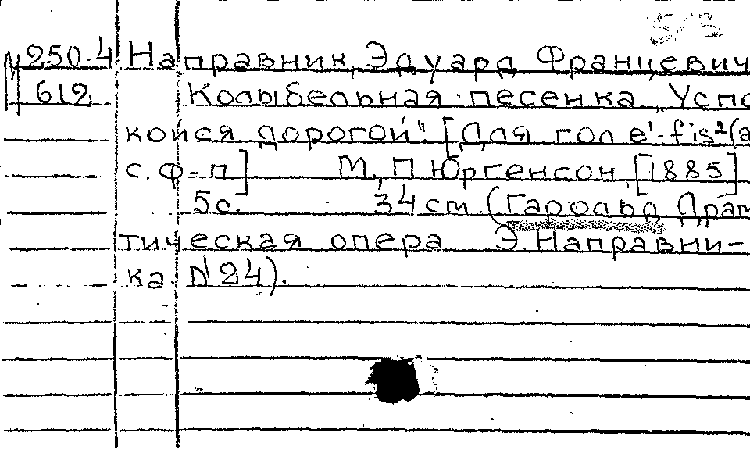 5/3
М250-4 Направник, Эдуард Францевич
612 Колыбельная песенка „Успо
койся дорогой" [Для гол e¹-fis²(a
с. ф-п] М., П. Юргенсон, [1885]
5с. 34 см (Гарольд Драм
тическая опера Э. Направни-
ка N24).